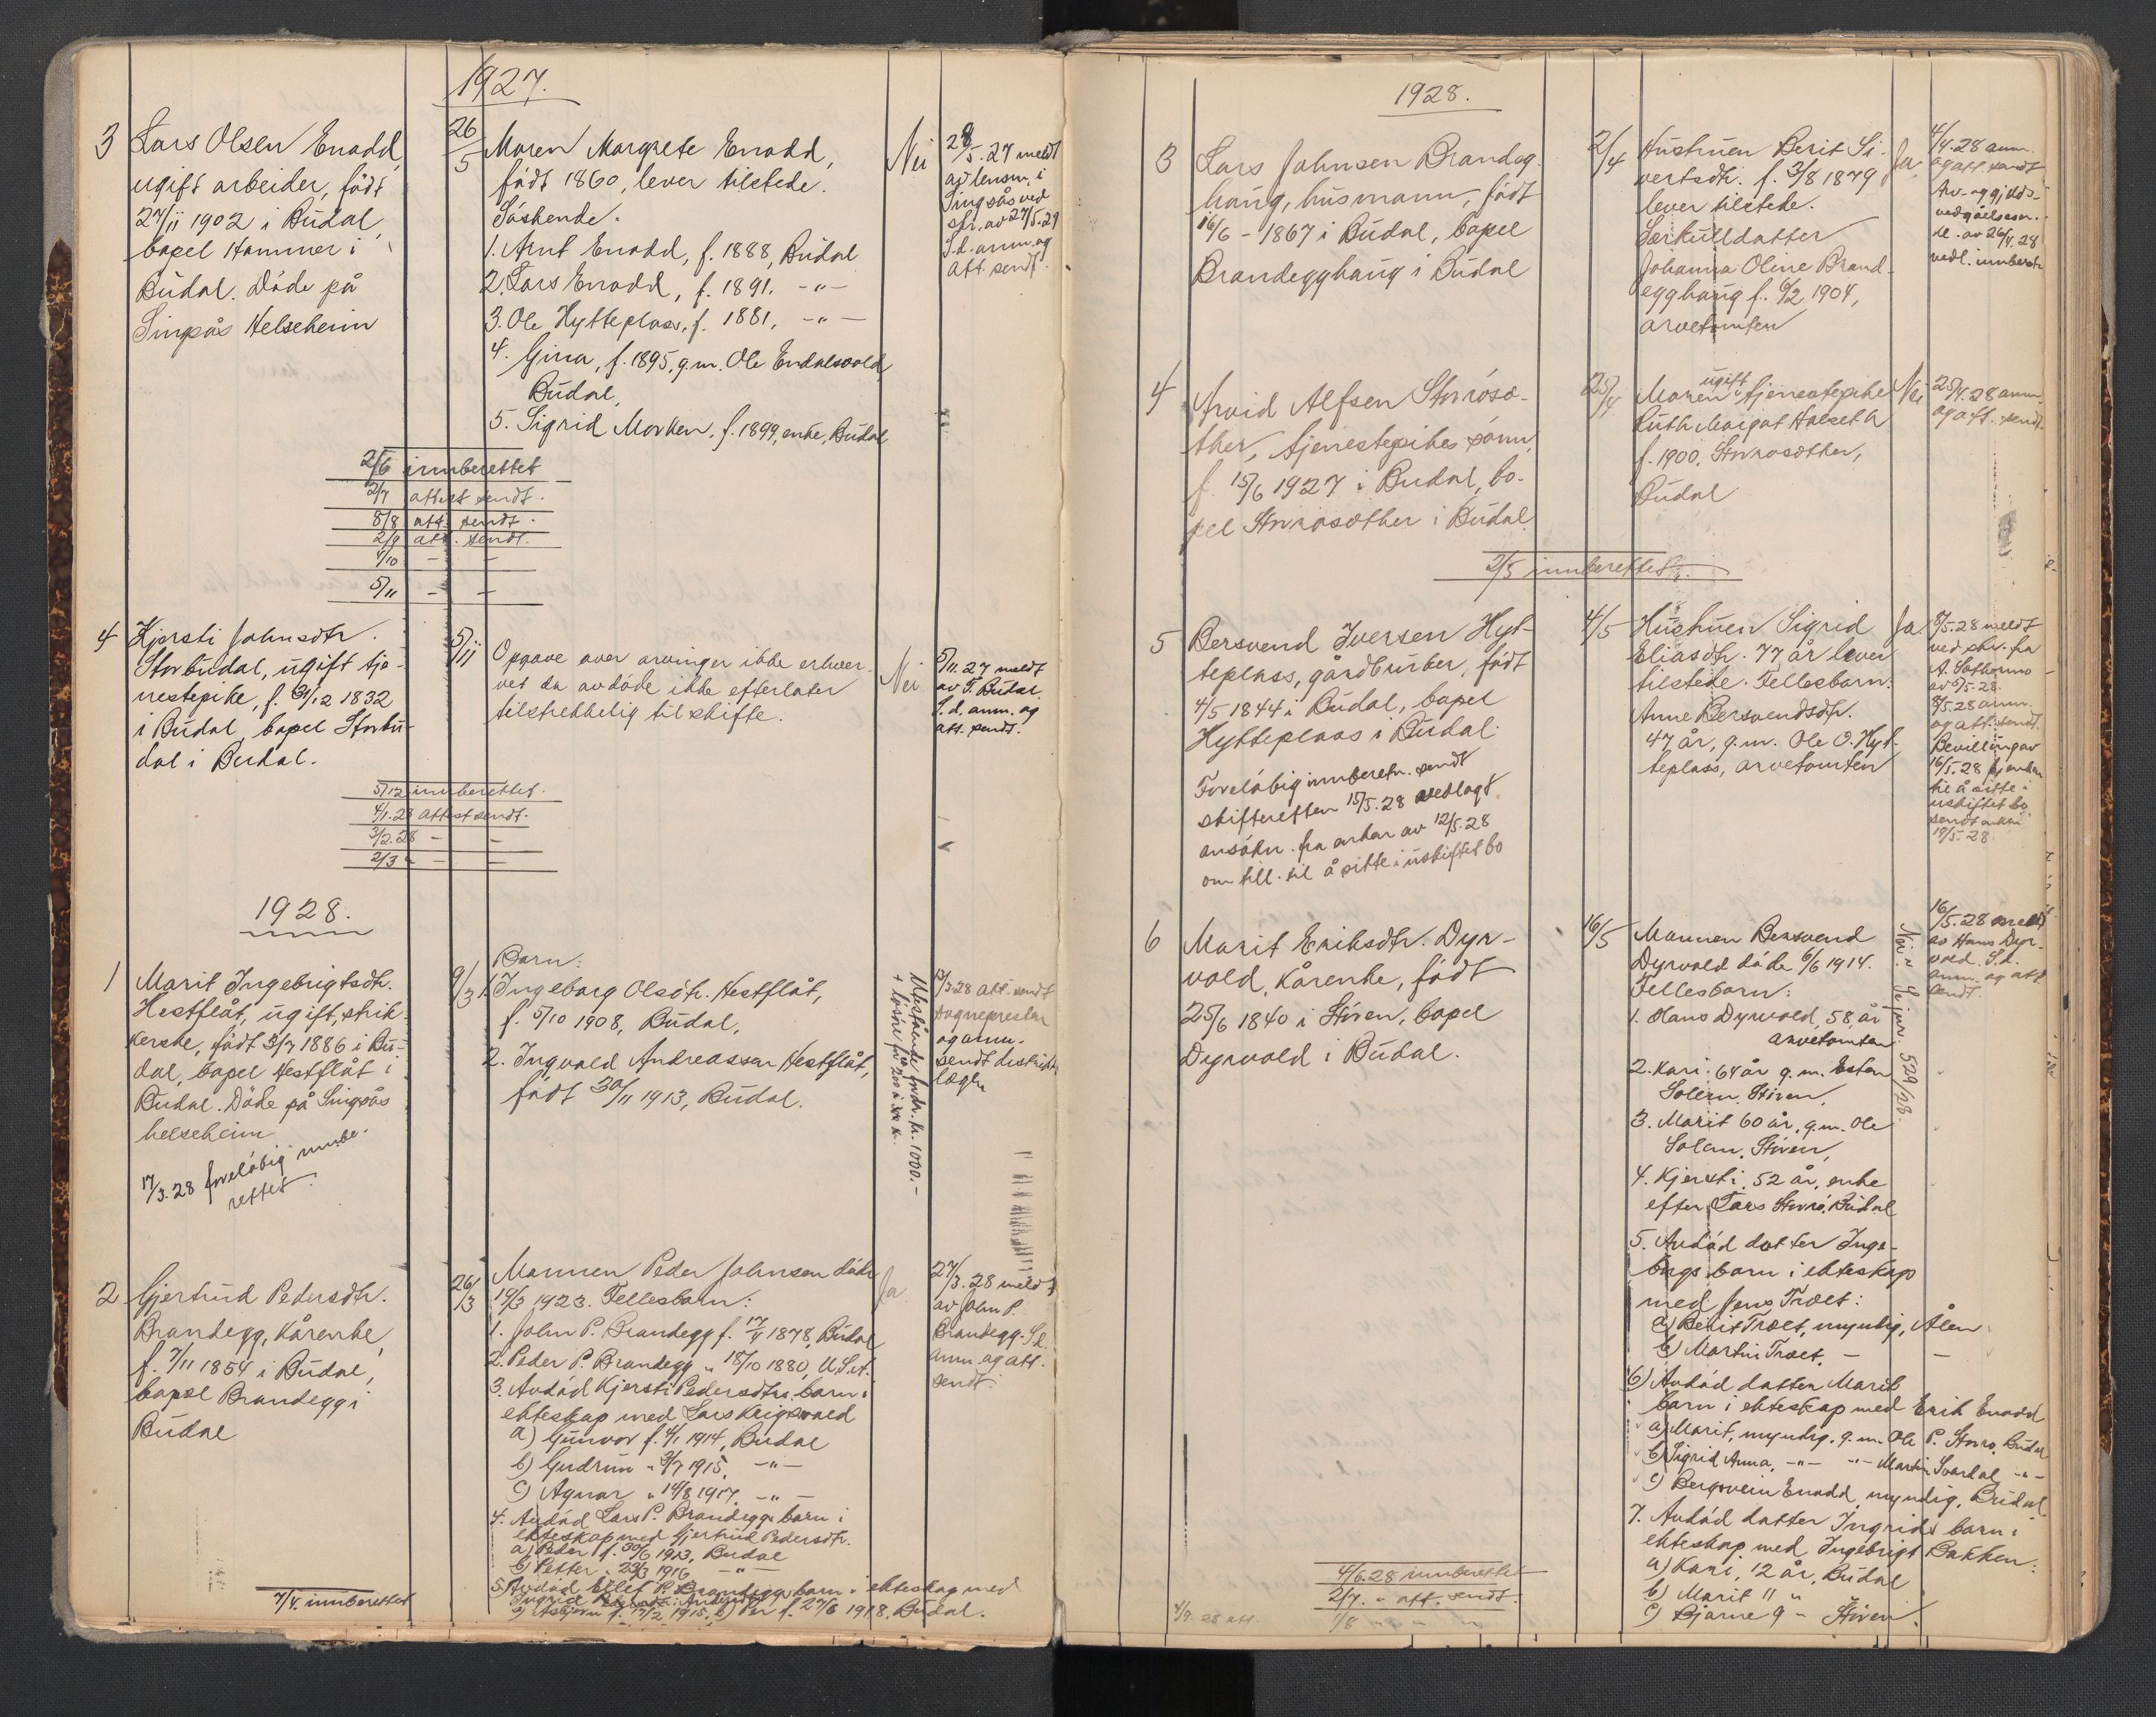 1927.
3
Lars Olsen Enodd,
ugift arbeider, född
27/11 1902 i Budal,
bopel Hammer i
Budal. Döde på
Singsås Helseheim
26/5
Maren Margrete Enodd,
född 1860, lever tilstede.
Söskende.
1. Arnt Enodd, f. 1888, Budal
2. Lars Enodd, f. 1891. -"-
3. Ole Hytteplass, f. 1881. -"-
4. Gina, f. 1895, g.m. Ole Endalsvold
Budal,
5. Sigrid Morken, f. 1899, enke, Budal
Nei
28/5.27 meldt
av lensm. i
Singsås ved
skr. av 27/5.27
S.d. anm. og
att. sendt.
2/6 innberettet
2/7 attest sendt.
8/8 att. sendt.
2/9 att. sendt.
4/10 - -
5/11 - -
4
Kjersti Johnsdtr.
Storbudal, ugift tje-
nestepike, f. 31/12 1832
i Budal, bopel Storbu-
dal i Budal.
5/11
Opgave over arvinger ikke erhver-
vet da avdöde ikke efterlater
tilstrekkelig til skifte.
Nei
5/11.27 meldt
av T. Budal.
S.d. anm. og
att. sendt.
5/12 innberettet.
4/1.28 attest sendt.
3/2.28 - -
2/3 " - -
1928.
1
Marit Ingebrigtsdtr.
Hestflåt, ugift, strik-
kerske, född 3/7 1886 i Bu-
dal, bopel Hestflåt i
Budal. Döde på Singsås
helseheim
17/3.28 foreløbig innbe-
rettet.
9/3
Barn:
1. Ingeborg Olsdtr. Hestflåt,
f. 5/10 1908, Budal,
2. Ingvald Andreassen Hestflåt,
född 30/11 1913, Budal.
Utestående fordr. kr. 1000.-
+ lösöre for 200 à
13/3 28 att. sendt
sognepresten
og anm.
sendt distrikts-
legen
2
Gjertrud Pedersdtr.
Brandegg, Kårenke,
f. 7/11 1854 i Budal,
bopel Brandegg i
Budal
26/3
Mannen Peder Johnsen döde
19/3 1923. Fellesbarn:
1. John P. Brandegg f. 17/5 1878, Budal
2. Peder P. Brandegg " 18/10 1880, U.S.A.
3. Avdöd Kjersti Pedersdtrs barn i
ekteskap med Lars
a) Gunvor f. 4/1 1914, Budal
b) Gudrun " 3/7 1915, -"-
c) Agnar " 14/8 1917. -"-
4. Avdöd Lars P. Brandeggs barn i
ekteskap med Gjertrud Pedersdtr.
a) Peder f. 30/6 1913, Budal
b) Petter " 23/3 1916 -"-
5. Avdöd Ellef P. Brandeggs barn i ekteskap med
Ingrid
a) Asbjørn f. 17/2 1915, b) Per f. 27/6 1918, Budal.
Ja
27/3.28 meldt
av John P.
Brandegg. S.d.
anm. og att.
sendt.
7/4. innberettet
1928.
3
Lars Johnsen Brandeg-
haug, husmann, född
16/6 - 1867 i Budal, bopel
Brandegghaug i Budal
2/4
Hustruen Berit Si-
vertsdtr. f. 3/8 1879
lever tilstede.
Særkulldatter
Johanna Oline Brand-
egghaug f. 6/2 1904,
arvetomten
Ja
4/4.28 anm.
og att. sendt
Arv- og gjelds-
vedgåelseser-
kl. av 26/4.28
vedl. innberetn
4
Arvid Alfsen Storrösæ-
ther, tjenestepikes sönn,
f. 15/6 1927 i Budal, bo-
pel Storrosæther i Budal
25/4
Moren ugift tjenestepike
Ruth Margot Halseth
f. 1900, Storrosæther,
Budal
Nei
25/4.28 anm.
og att. sendt.
2/5 innberettet.
5
Bersvend Iversen Hyt-
teplass, gårdbruker, född
4/5 1844 i Budal, bopel
Hytteplass i Budal.
Foreløbig innberetn. sendt
skifteretten 15/5.28 vedlagt
ansökn. fra enken av 12/5.28
om till. til å sitte i uskiftet bo
4/5
Hustruen Sigrid
Eliasdtr. 77 år lever
tilstede. Fellesbarn:
Anne Bersvendsdtr.
47 år, g.m. Ole O. Hyt-
teplass, arvetomten
Ja
8/5.28 meldt
ved skr. fra
A.
av 6/5-28.
8/5.28 anm.
og att. sendt.
Bevilling av
16/5.28 for enken
til å sitte i
uskiftet bo
sendt enken
19/5-28.
6
Marit Eriksdtr. Dyr-
vold, Kårenke, född
25/6 1840 i Stören, bopel
Dyrvold i Budal.
16/5
Mannen Bersvend
Dyrvold döde 6/6 1914.
Fellesbarn:
1. Hans Dyrvold, 58 år
arvetomten
2. Kari 64 år g.m. Esten
Solem, Stören,
3. Marit 60 år, g.m. Ole
Solem, Stören,
4. Kjersti, 52 år, enke
efter Lars Storrö, Budal
5. Avdöd datter Inge-
borgs barn i ekteskap
med Jens Troet:
a) Berit Troet, myndig, Ålen
b) Martin Troet, - -
6) Avdöd datter Marits
barn i ekteskap med Erik Enodd
a) Marit, myndig, g.m. Ole P. Storrø, Budal
b) Sigrid Anna, -"- -"- Martin -"-
c) Bergsvein Enodd, myndig, Budal
7. Avdöd datter Ingrids barn i
ekteskap med Ingebrigt Bakken:
a) Kari, 12 år, Budal
b) Marit 11 " "
c) Bjarne 9 - Stören.
Nei. Se jour. 529/28.
16/5.28 meldt
av Hans Dyr-
vold. S.d.
anm. og att
sendt.
4/6.28 innberettet
2/7. " att. sendt.
1/8 " " "
4/9. 28 att.